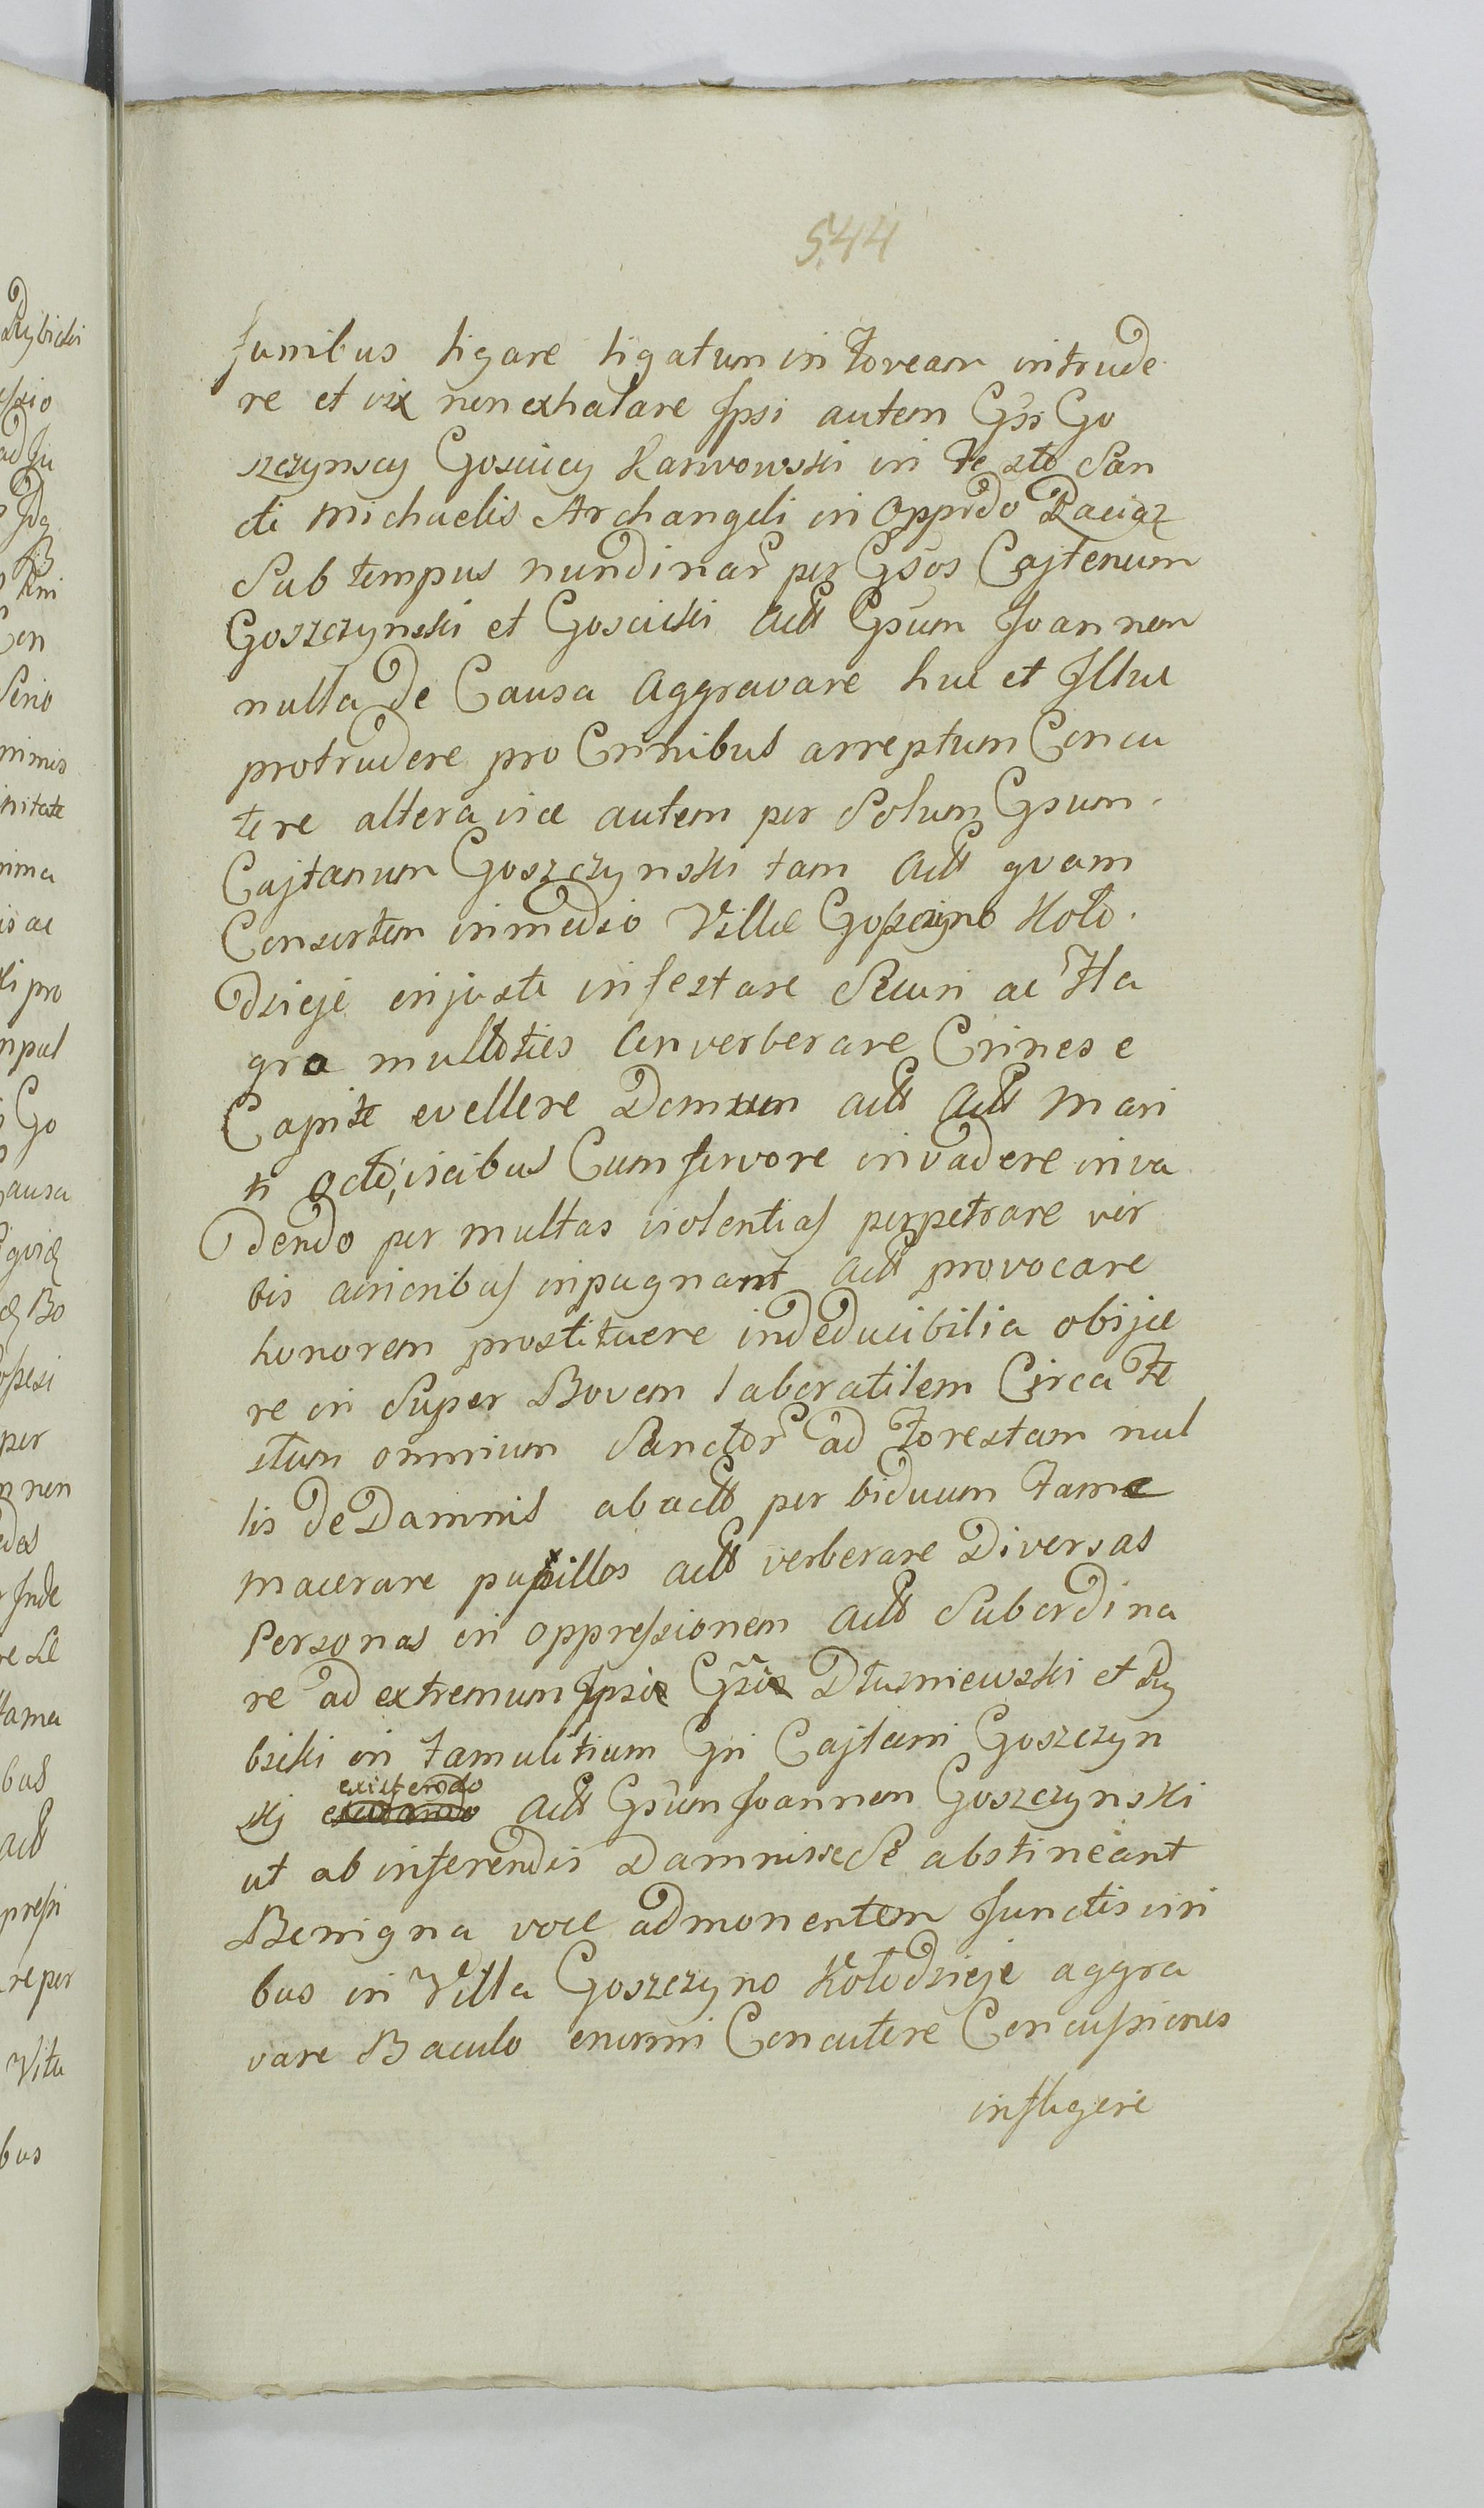 544
funibus ligare ligatum in Foveam intrude
re et vix non exhalare Ipsi autem Gsi Go
szczynscy Goscicy Karwowski in Festo San
cti Michaelis Archangeli in Oppido Raciąz
Sub tempus nundinar per Gsos Cajtenum
Goszczynski et Goscicki Actt Gsum Joannem
nulla de Causa Aggravare huc et Illuc
protrudere pro Crinibus arreptum Concu
tere altera vice autem per Solum Gsum
Cajtanum Goszczynski tam Actt quam
Consortem in medio Villæ Goszczyno Koło
dzieje injuste infestare Securi ac Fla
gro multoties Converberare Crines e
Capite evellere Domum actt Actt Mari
ti octo, vicibus Cum furvore invadere inva
dendo per multas violentias perpetrare ver
bis acrioribus inpugnant Actt provocare
honorem prostituere indeducibilia obijce
re in Super Bovem laboratilem Circa Fe
stum omnium Sanctor ad Forestam nul
lis de Damnis ab actt per biduum Fame
macerare pupillos actt verberare Diversas
Personas in oppressionem Actt Subordina
re ad extremum Ipsi Gsi Dłuzniewski et Ry
bicki in Famulitium Gsi Cajtani Goszczyn
skj existendo Actt Gsum Joannem Goszczynski
ut ab inferendis Damnis se Se abstineant
Benigna voce admonentem Junctis viri
bus in Villa Goszczyno Kołodzieje aggra
vare Baculo enormi Concutere Concussiones
infligere